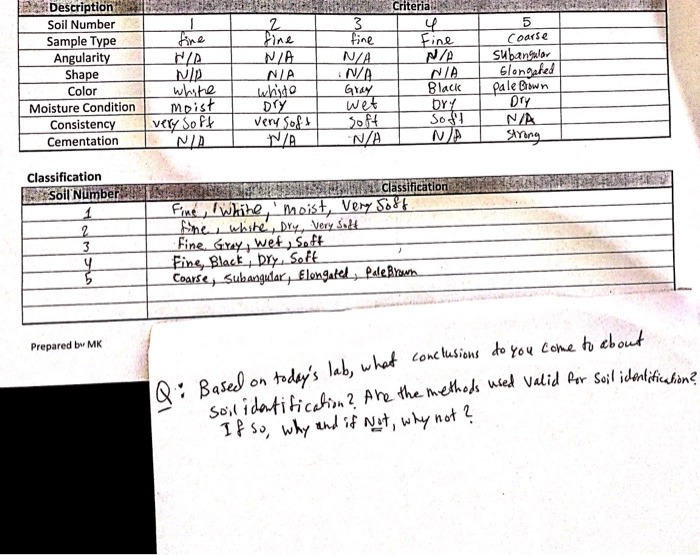 Description Criteria
Soil Number 1 2 3 4 5
Sample Type fine fine fine Fine Coarse
Angularity N/A N/A N/A N/A Subangular
Shape N/A N/A N/A N/A Elongated
Color white white Gray Black pale Brown
Moisture Condition moist Dry wet Dry Dry
Consistency very Soft very Soft Soft Soft N/A
Cementation N/A N/A N/A N/A Strong
Classification
Soil Number Classification
1 Fine, white, moist, Very Soft
2 fine, white, Dry, Very Soft
3 fine Gray, Wet, Soft
4 Fine, Black, Dry, Soft
5 Coarse, Subangular, Elongated, Pale Brown
Prepared by MK
Q: Based on today's lab, what conclusions do you come to about
soil identification? Are the methods used valid for soil identification?
If so, why and if Not, why not?